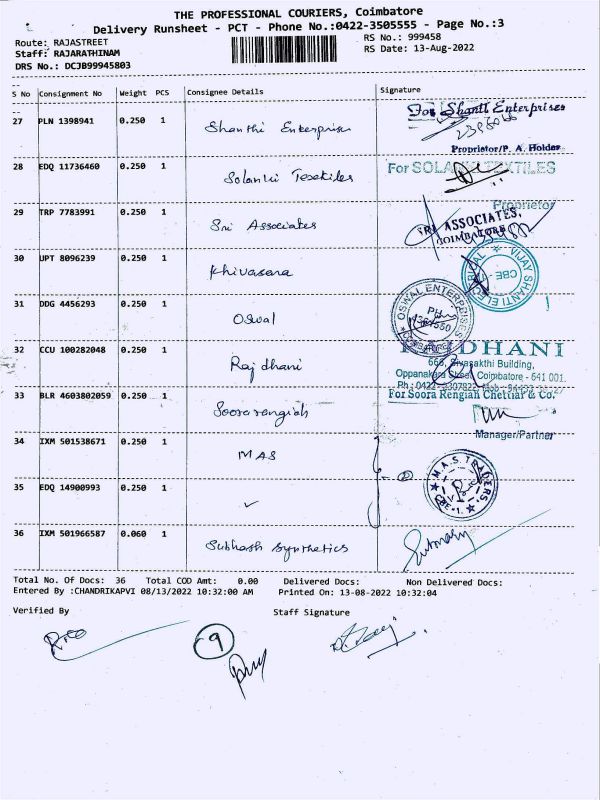 THE PROFESSIONAL COURIERS, Coimbatore
Delivery Runsheet - PCT - Phone No.:0422-3505555 - Page No.:3
Route: RAJASTREET
RS No.: 999458
Staff: RAJARATHINAM
RS Date: 13-Aug-2022
DRS No.: DCJB99945803
S No Consignment No Weight PCS Consignee Details Signature
27 PLN 1398941 0.250 1 Shanthi Enterprises
For Shanti Enterprises
Proprietor/P. A. Holder
28 EDQ 11736460 0.250 1 Solanki Textiles
For SOLANKI TEXTILES
Proprietor
29 TRP 7783991 0.250 1 Sri Associates
SRI ASSOCIATES,
COIMBATORE
30 UPT 8096239 0.250 1 Khivasara
VIJAY SHANTI ELECTRICAL
CBE -
31 DDG 4456293 0.250 1 Oswal
OSWAL ENTERPRISES
32 CCU 100282048 0.250 1 Rajdhani
DHANI
Sivasakthi Building,
Oppanakara Street, Coimbatore - 641 001.
33 BLR 4603802059 0.250 1 Soorarengiah
For Soora Rengiah Chettiar & Co.
Manager/Partner
34 IXM 501538671 0.250 1 MAS
M.A.S. TRADERS
CBE-1.
35 EDQ 14900993 0.250 1 ✓
36 IXM 501966587 0.060 1 Subhash Synthetics
Total No. Of Docs: 36 Total COD Amt: 0.00 Delivered Docs: Non Delivered Docs:
Entered By :CHANDRIKAPVI 08/13/2022 10:32:00 AM Printed On: 13-08-2022 10:32:04
Verified By Staff Signature
9